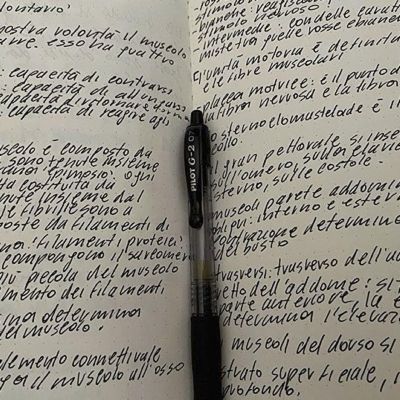 olontario'
nostra volontà il muscolo
esso ha quattro
: capacità di contrarsi
: capacità di
capacità di ritornare
: capacità di reagire agli
muscolo è composto da
sono tenute insieme
epimesio. ogni
costituita da
insieme dal
le fibrille sono a
poste da filamenti di
filamenti proteici
compongono il sarcomero
più piccola del muscolo
mento dei filamenti
determina
del muscolo.
elemento connettivale
il muscolo all'osso
PILOT G-2 07
stimolo
bianche:
stimolo nervoso
intermedie: con delle caratt
mistetra quelle rosse ebianche
L'unità motoria è definita
e le fibre muscolari
placca motrice: è il punto d
la fibra nervosa e la fibra
sternocleomastelade è il
il gran pettorale si inse
sull'omero, sulla clavic
sterno, sulle costole.
muscoli parete addomin
interno e ester
contrazione determine
del busto
trasversi: trasverso dell'a
retto dell'addome: si t
parte anteriore, la
determina l'
muscoli del dorso si
strato superficiale, i
profondo.